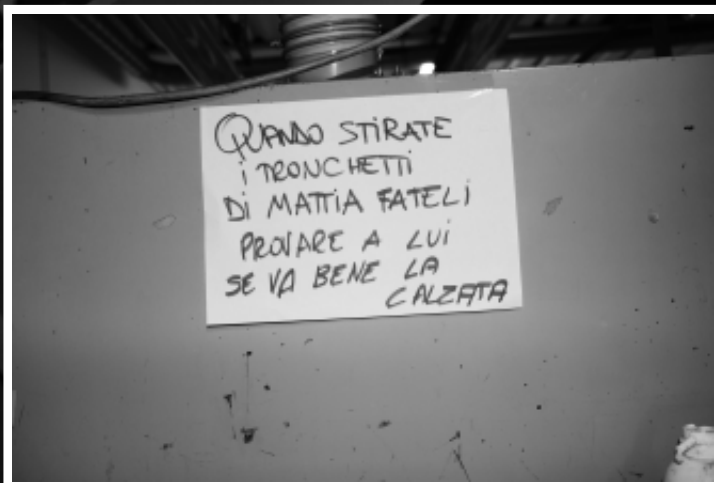 QUANDO STIRATE
i TRONCHETTi
Di MATTiA FATELi
PROVARE A LUI
SE VA BENE LA
CALZATA